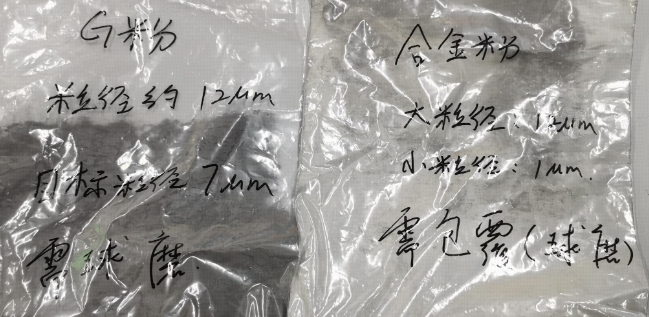 G粉
粒径约 12μm
目标粒径 7μm
需球磨
合金粉
大粒径：12μm
小粒径：1μm.
需包覆（球磨）